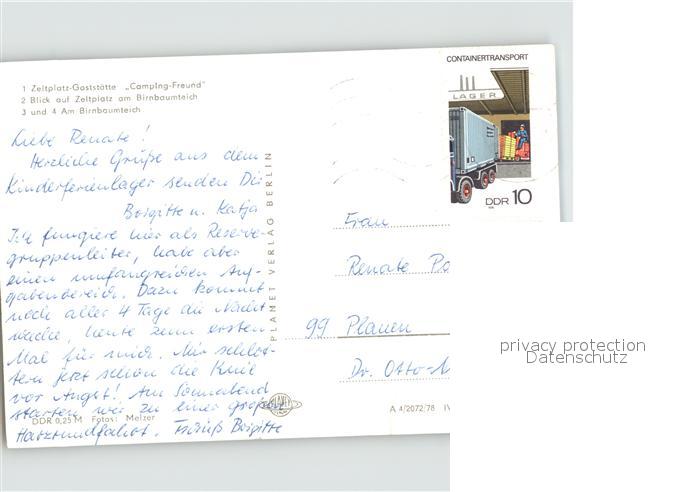 1 Zeltplatz-Gaststätte „Camping-Freund"
2 Blick auf Zeltplatz am Birnbaumteich
3 und 4 Am Birnbaumteich
Liebe Renate!
Herzliche Grüße aus dem
Kinderferienlager senden Dir
Brigitte u. Katja
Ich fungiere hier als Reserve-
gruppenleiter, habe aber
einen umfangreichen Auf-
gabenbereich. Dazu kommt
noch aller 4 Tage die Nacht
wache, heute zum ersten
Mal für mich. Mir schlot-
tern jetzt schon die Knie
vor Angst! Am Sonnabend
starten wir zu einer großen
Harzrundfahrt. Brigitte
DDR 0,25 M Fotos: Melzer
PLANET VERLAG BERLIN
PLANET
A 4/2072/78 IV
CONTAINERTRANSPORT
LAGER
DDR 10
Frau
Renate Po
99 Plauen
Dr. Otto-
privacy protection
Datenschutz